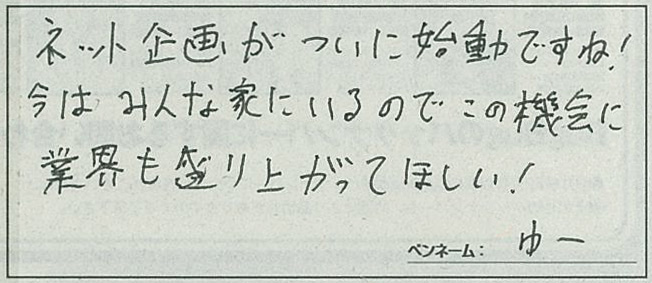 ネット企画がついに始動ですね!
今はみんな家にいるのでこの機会に
業界も盛り上がってほしい!
ペンネーム: ゆー